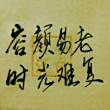 容颜易老
时光难复